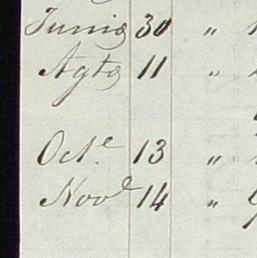 Junio 30 "
Agto 11 "
Octe 13 "
Nove 14 "